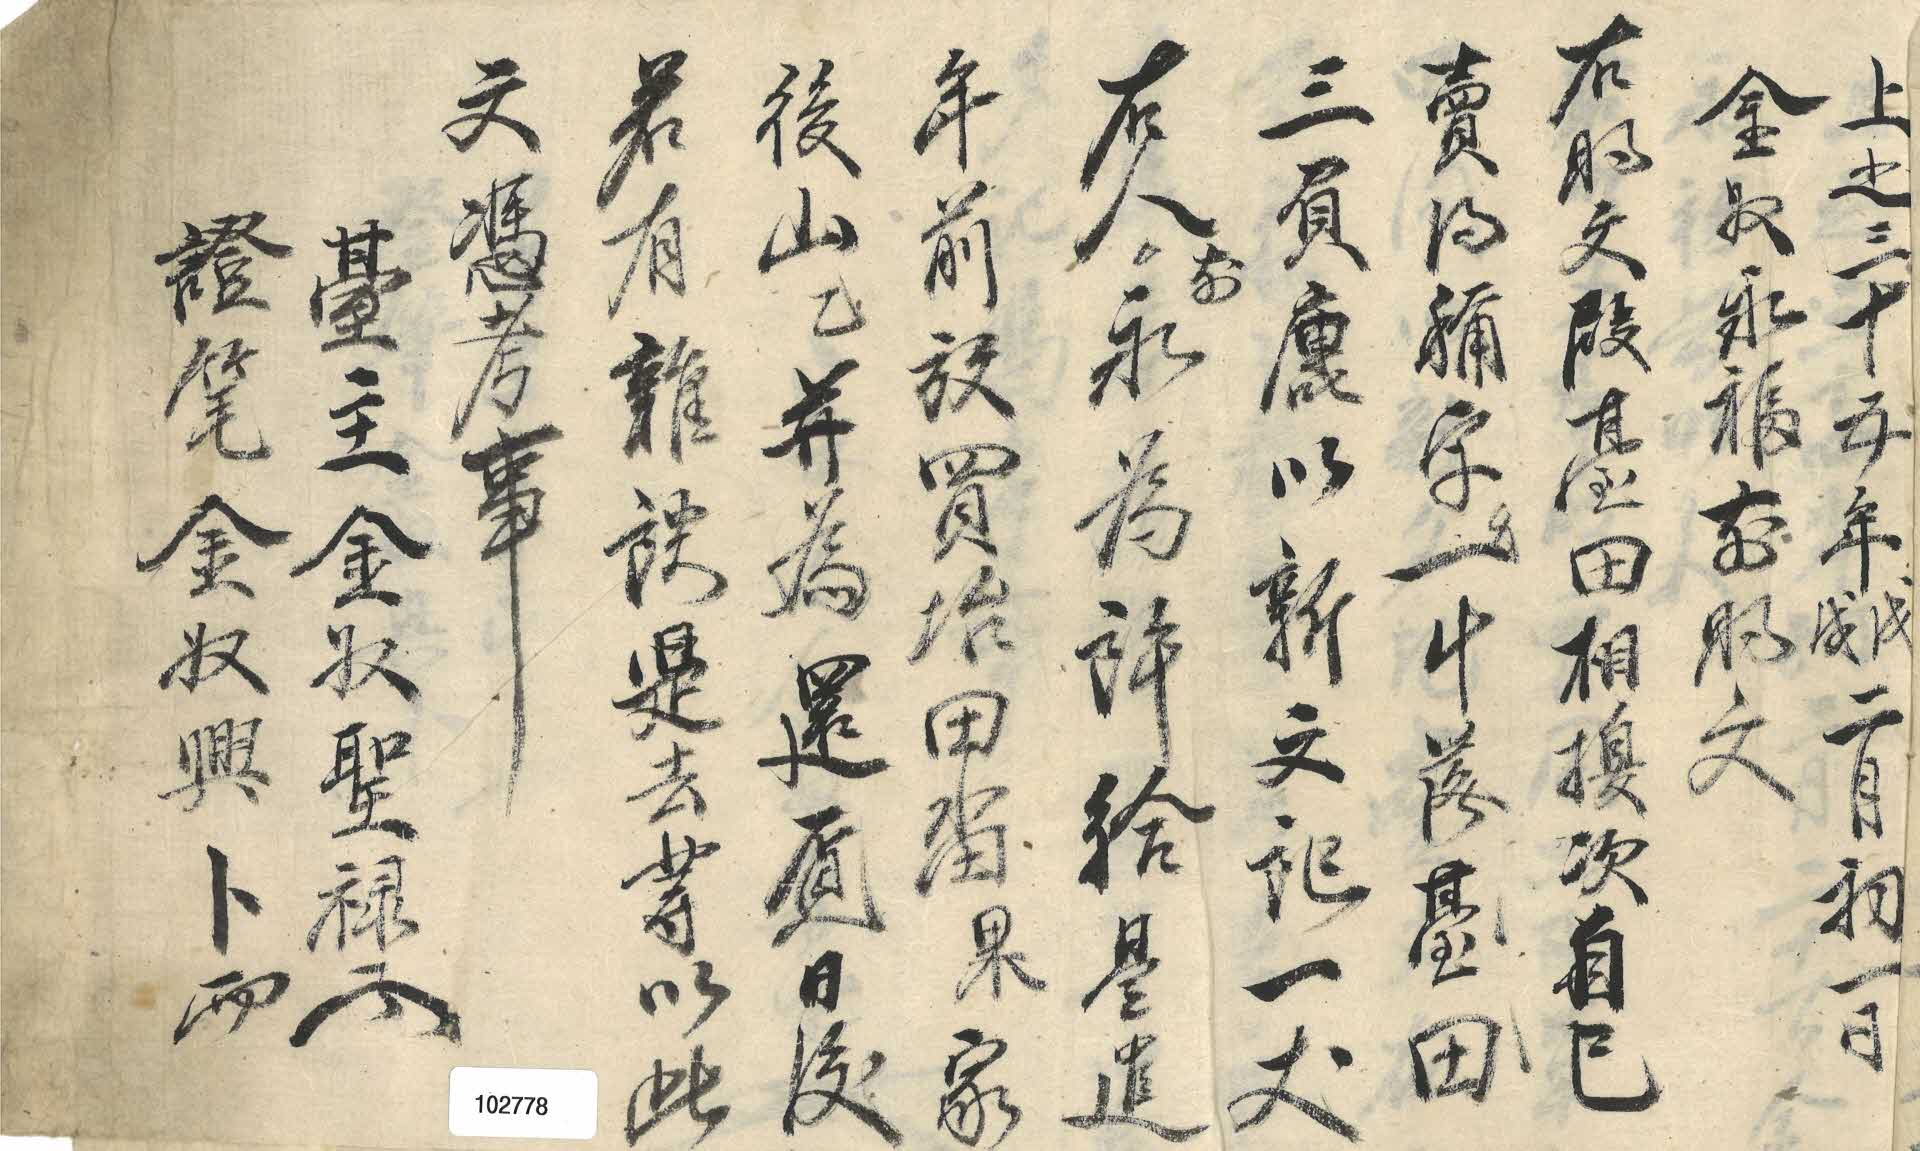 上之三十五年戊戌二月初一日
金奴永福前明文
右明文段垈田相換次自己
賣得 字一斗落垈田
三負 以新文記一丈
右人前永爲許給是遣
年前放買垈田畓果家
後山乙并爲還退日後
若有雜談是去等以此
文憑考事
垈主金奴聖祿
證筆金奴興卜
102778